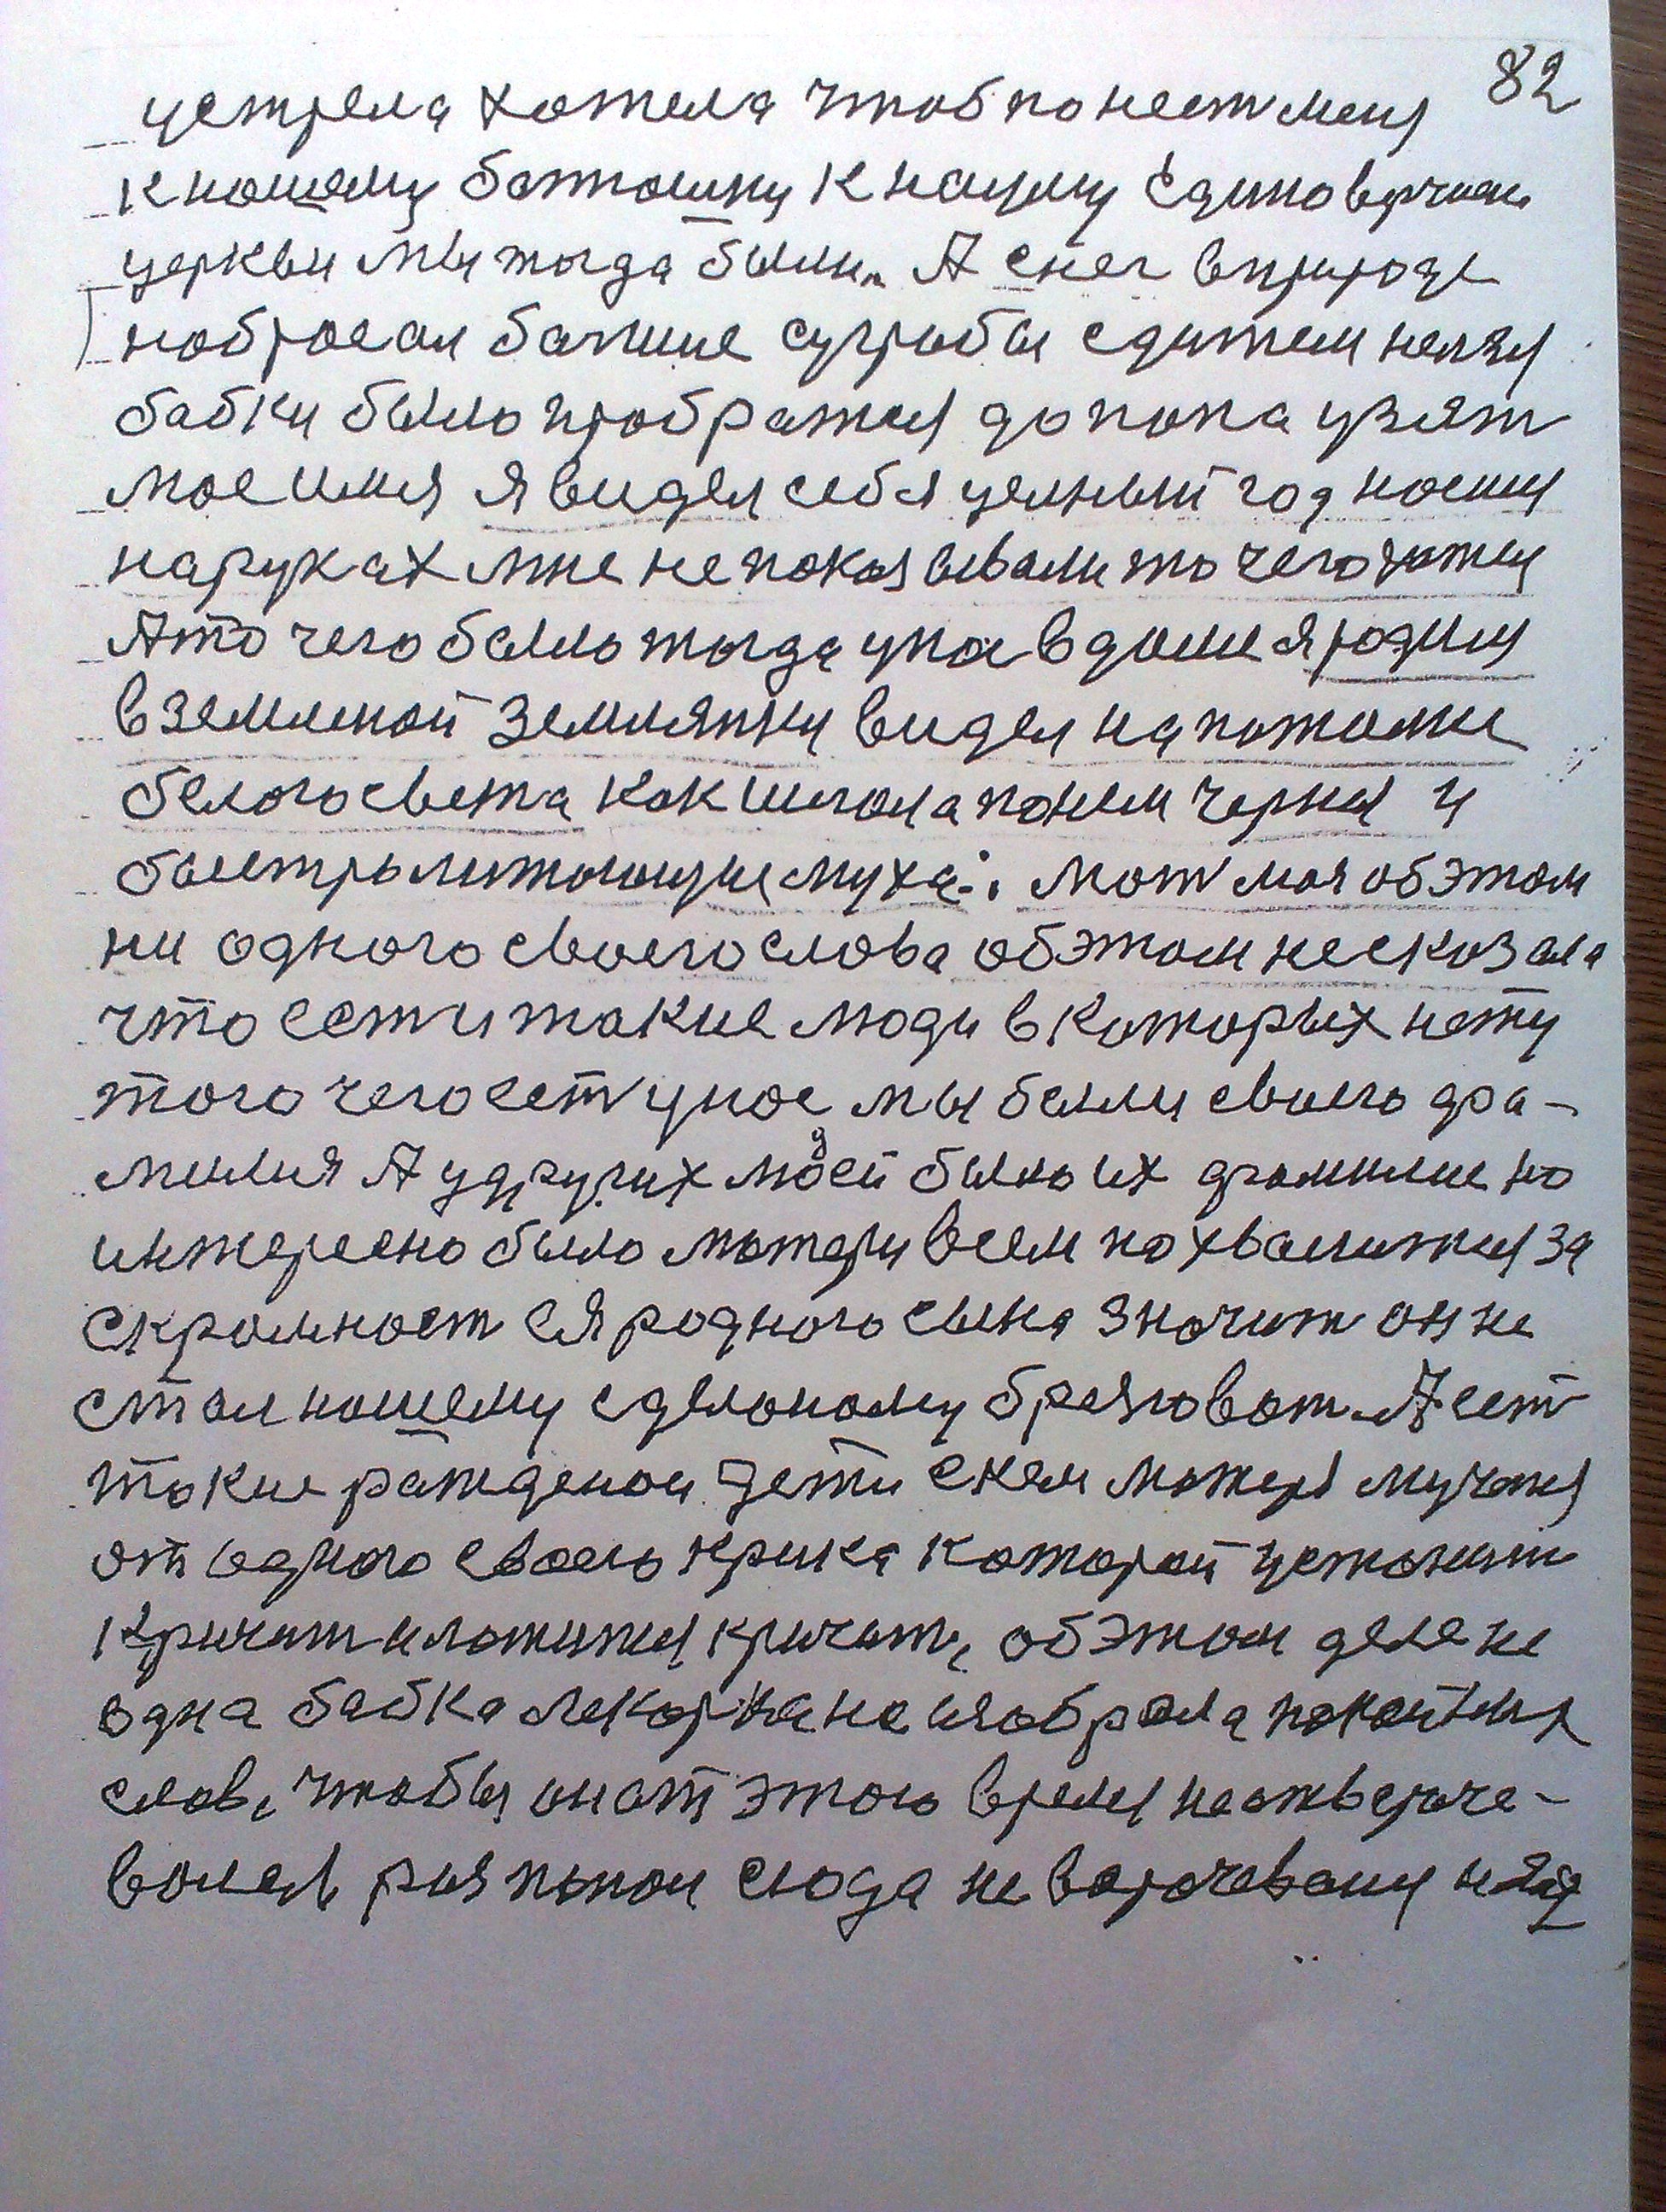 82
устрела хотела чтоб понест меня
к нашему батюшку к нашему единоверчиски
церкви мы тогда были. А снег в природе
набросал балшие сугробы с дитем нелзя
бабки было пробратся до попа узят
мое имя я видел себя целный год носили
на руках мне не показывали то чего хотел
А то чего было тогда у нас в доме я родиля
в земленой землянки видел на потолке
белого света как шгола по нем черная и
быстры литающие муха. Мат моя об этом
ни одного своего слова об этом не сказала
что ест и такие люди в которых нету
того чего ест у нас мы были своего фа-
милия А у других людей было их фамилие но
интересно было матери всем похвалится за
скромност ея родного сына значит он не
стал нашему сделоному брезговат. А ест
такие ражденои дети с кем матеря мучатся
от одного своего крика которой устонит
кричит и ложится кричит, об этом деле не
одна бабка лекарка не изобрала покойных
слов, чтобы он от этого время не отверече-
вался раз попом сюда не варочевался